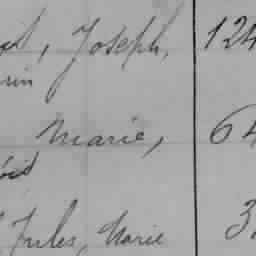 , Joseph, 124
rin
Marie, 64
Jules, Marie 3